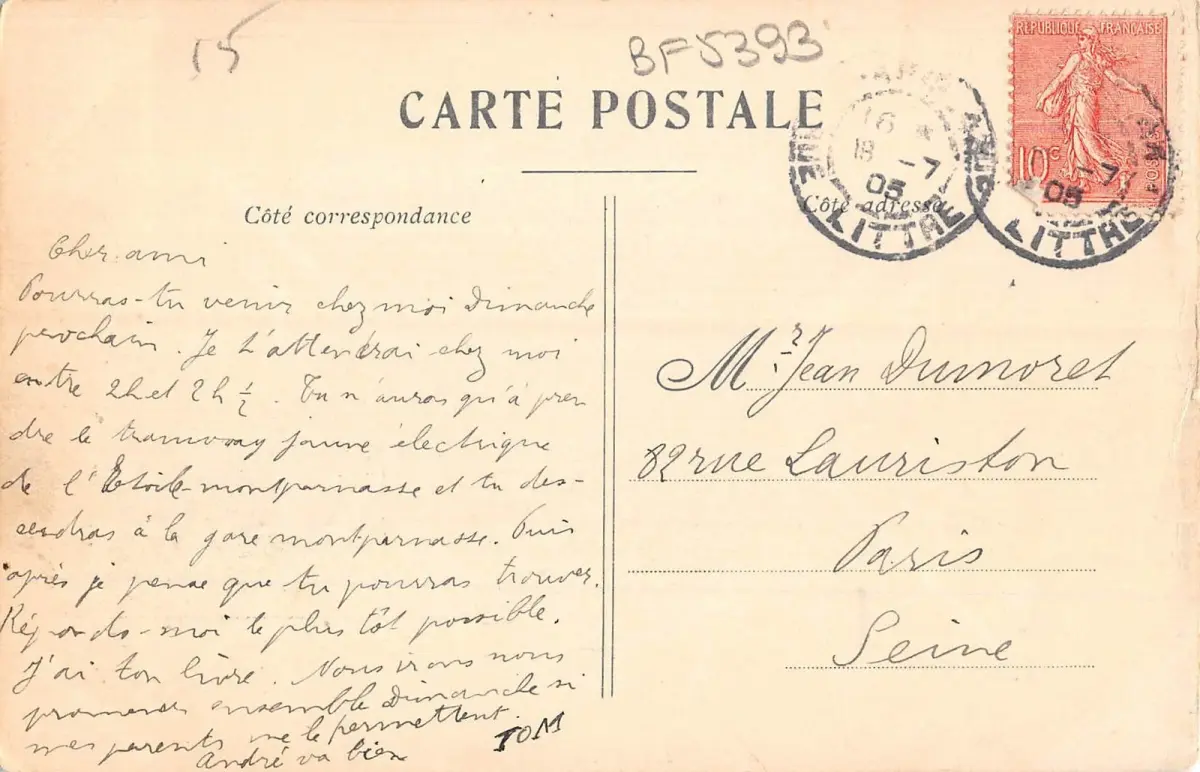 15
BF5393
RÉPUBLIQUE FRANÇAISE
10c
POSTES
CARTE POSTALE
18 -7
05
RUE LITTRÉ
-7
05
RUE LITTRÉ
Côté correspondance
Côté adresse
Cher ami
Pourras-tu venir chez moi Dimanche
prochain. Je t'attendrai chez moi
entre 2h et 2h ½. Tu n'auras qu'à pren
dre le tramway jaune électrique
de l'Etoile-montparnasse et tu des-
cendras à la gare montparnasse. Puis
après je pense que tu pourras trouver.
Réponds-moi le plus tôt possible.
J'ai ton livre. Nous irons nous
promener ensemble Dimanche si
mes parents me le permettent.
André va bien
TOM
Mr. Jean Dumoret
82 rue Lauriston
Paris
Seine